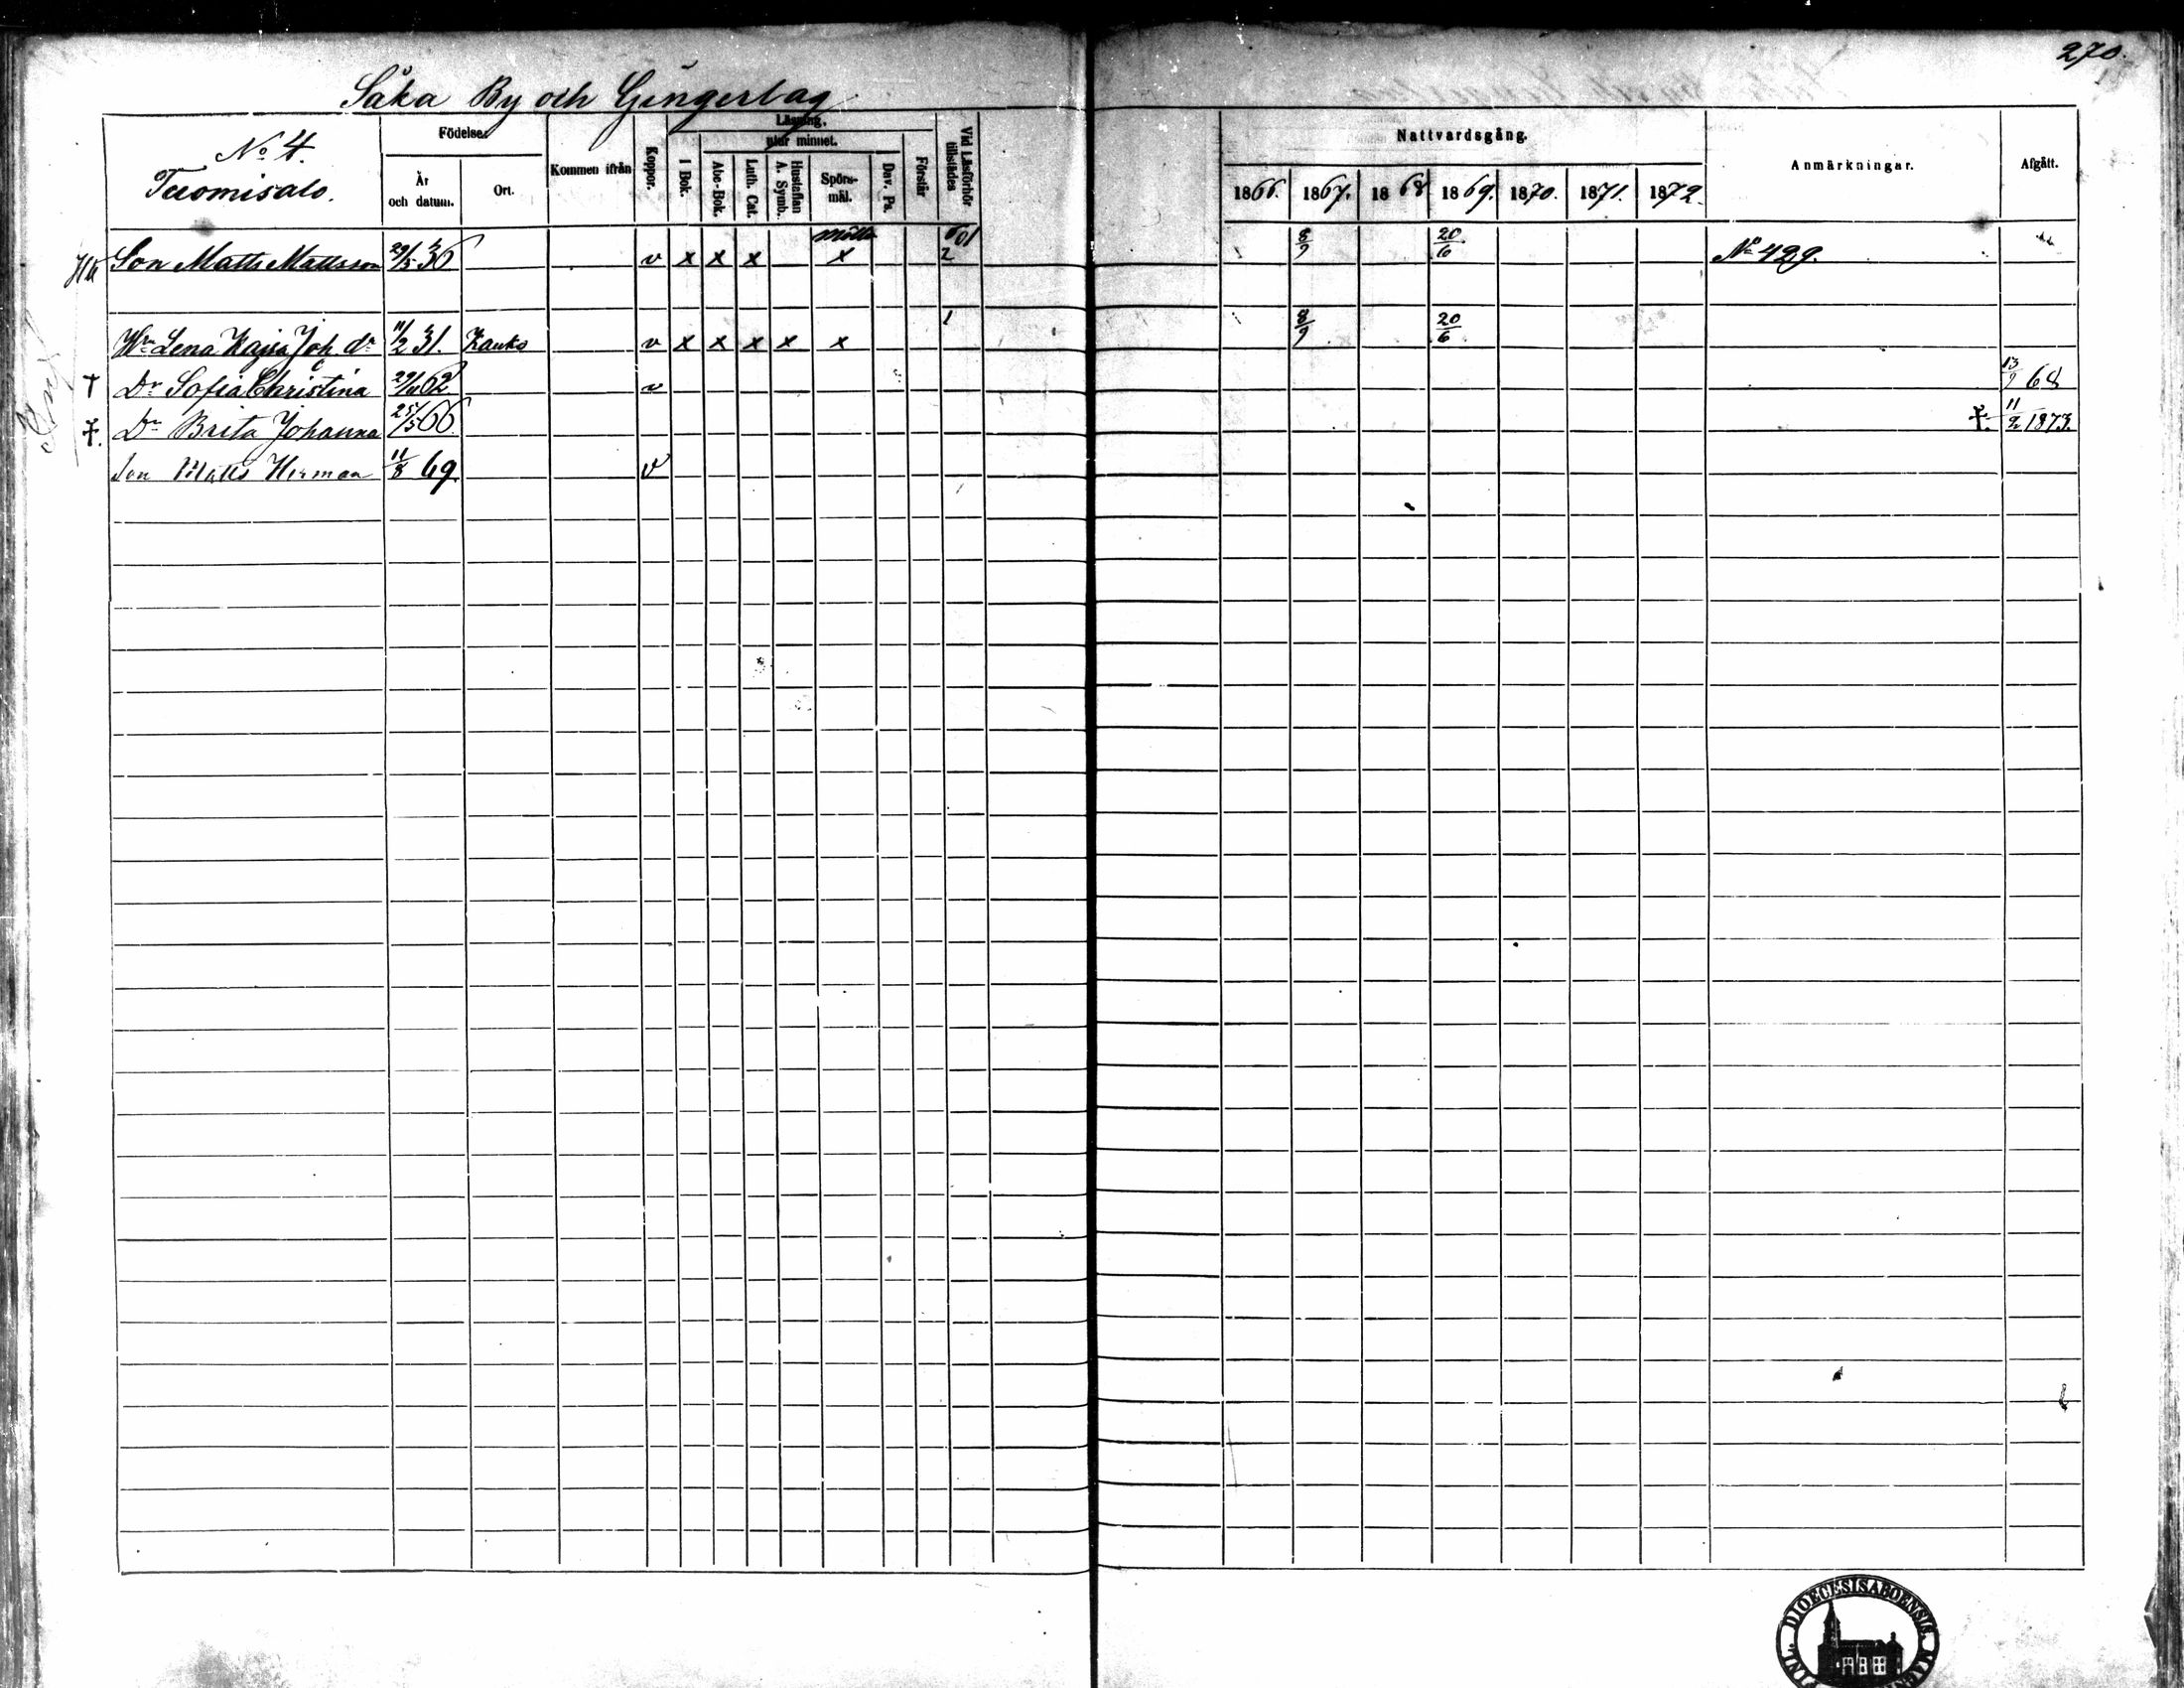 270.
Såka By och Gingerlag
No 4.
Tuomisalo.
Födelse.
År och datum.
Ort.
Kommen ifrån
Koppor.
Läsning.
utur minnet.
I Bok.
Abc-Bok.
Luth. Cat.
Hustaflan A. Symb.
Spörs-mål.
Dav. Ps.
Förstår
Vid Läsförhör tillstädes
Nattvardsgång.
1866. 1867. 1868 1869. 1870. 1871. 1872.
Anmärkningar.
Afgått.
Son Matts Mattsson 29/5 36 v x x x x 2 8/9 20/6 No 429.
Hn Lena Kajsa Joh. dr 11/2 31. Kauko v x x x x x 1 8/9 20/6
† Dr Sofia Christina 29/11 62 v 13/9 68
†. Dr Brita Johanna 25/5 66 †. 11/2 1873.
Son Matts Herman 11/8 69. v
DIOECESIS ABOENSIS